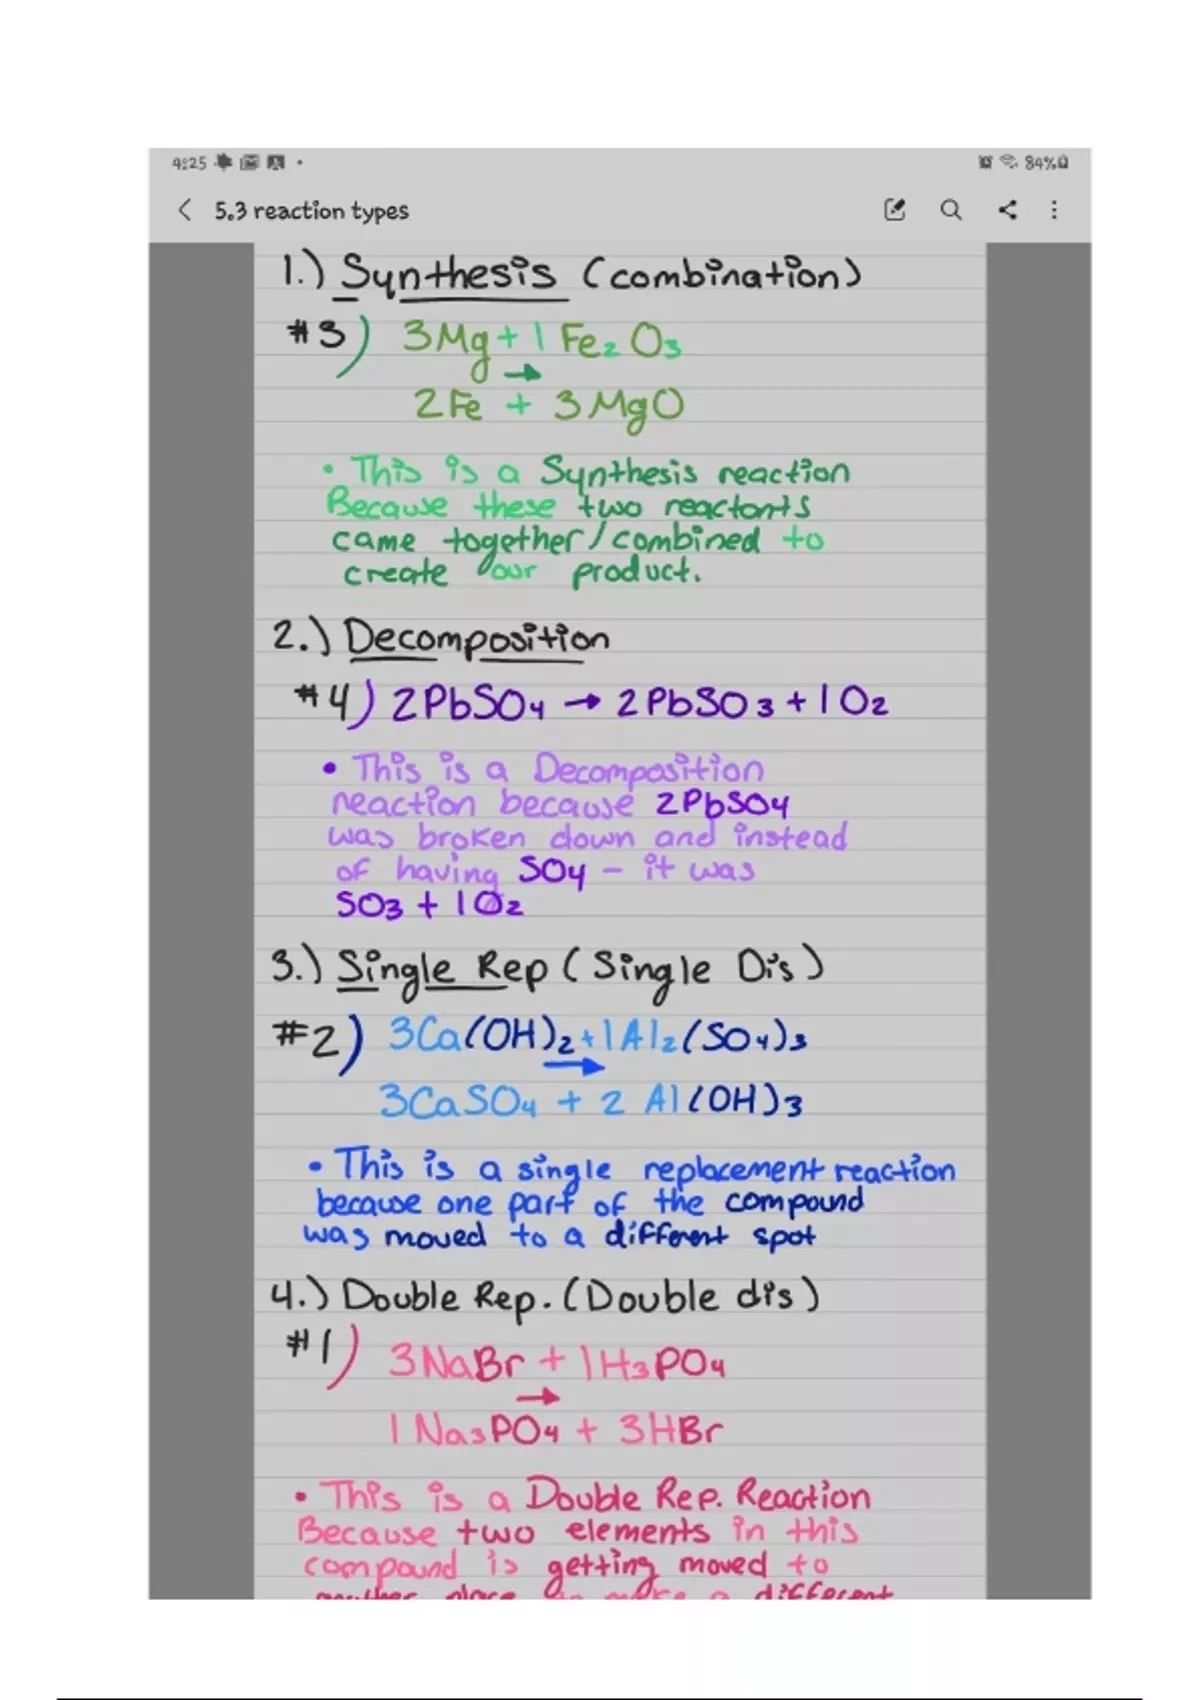 4:25
84%
5.3 reaction types
1.) Synthesis (combination)
#3) 3Mg + 1 Fe₂O₃
→
2Fe + 3MgO
• This is a Synthesis reaction
Because these two reactants
came together/combined to
create our product.
2.) Decomposition
#4) 2PbSO₄ → 2PbSO₃ + 1O₂
• This is a Decomposition
reaction because 2PbSO₄
was broken down and instead
of having SO₄ – it was
SO₃ + 1O₂
3.) Single Rep (Single Dis)
#2) 3Ca(OH)₂ + 1Al₂(SO₄)₃
→
3CaSO₄ + 2 Al(OH)₃
• This is a single replacement reaction
because one part of the compound
was moved to a different spot
4.) Double Rep. (Double dis)
#1) 3NaBr + 1H₃PO₄
→
1Na₃PO₄ + 3HBr
• This is a Double Rep. Reaction
Because two elements in this
compound is getting moved to
another place to make a different